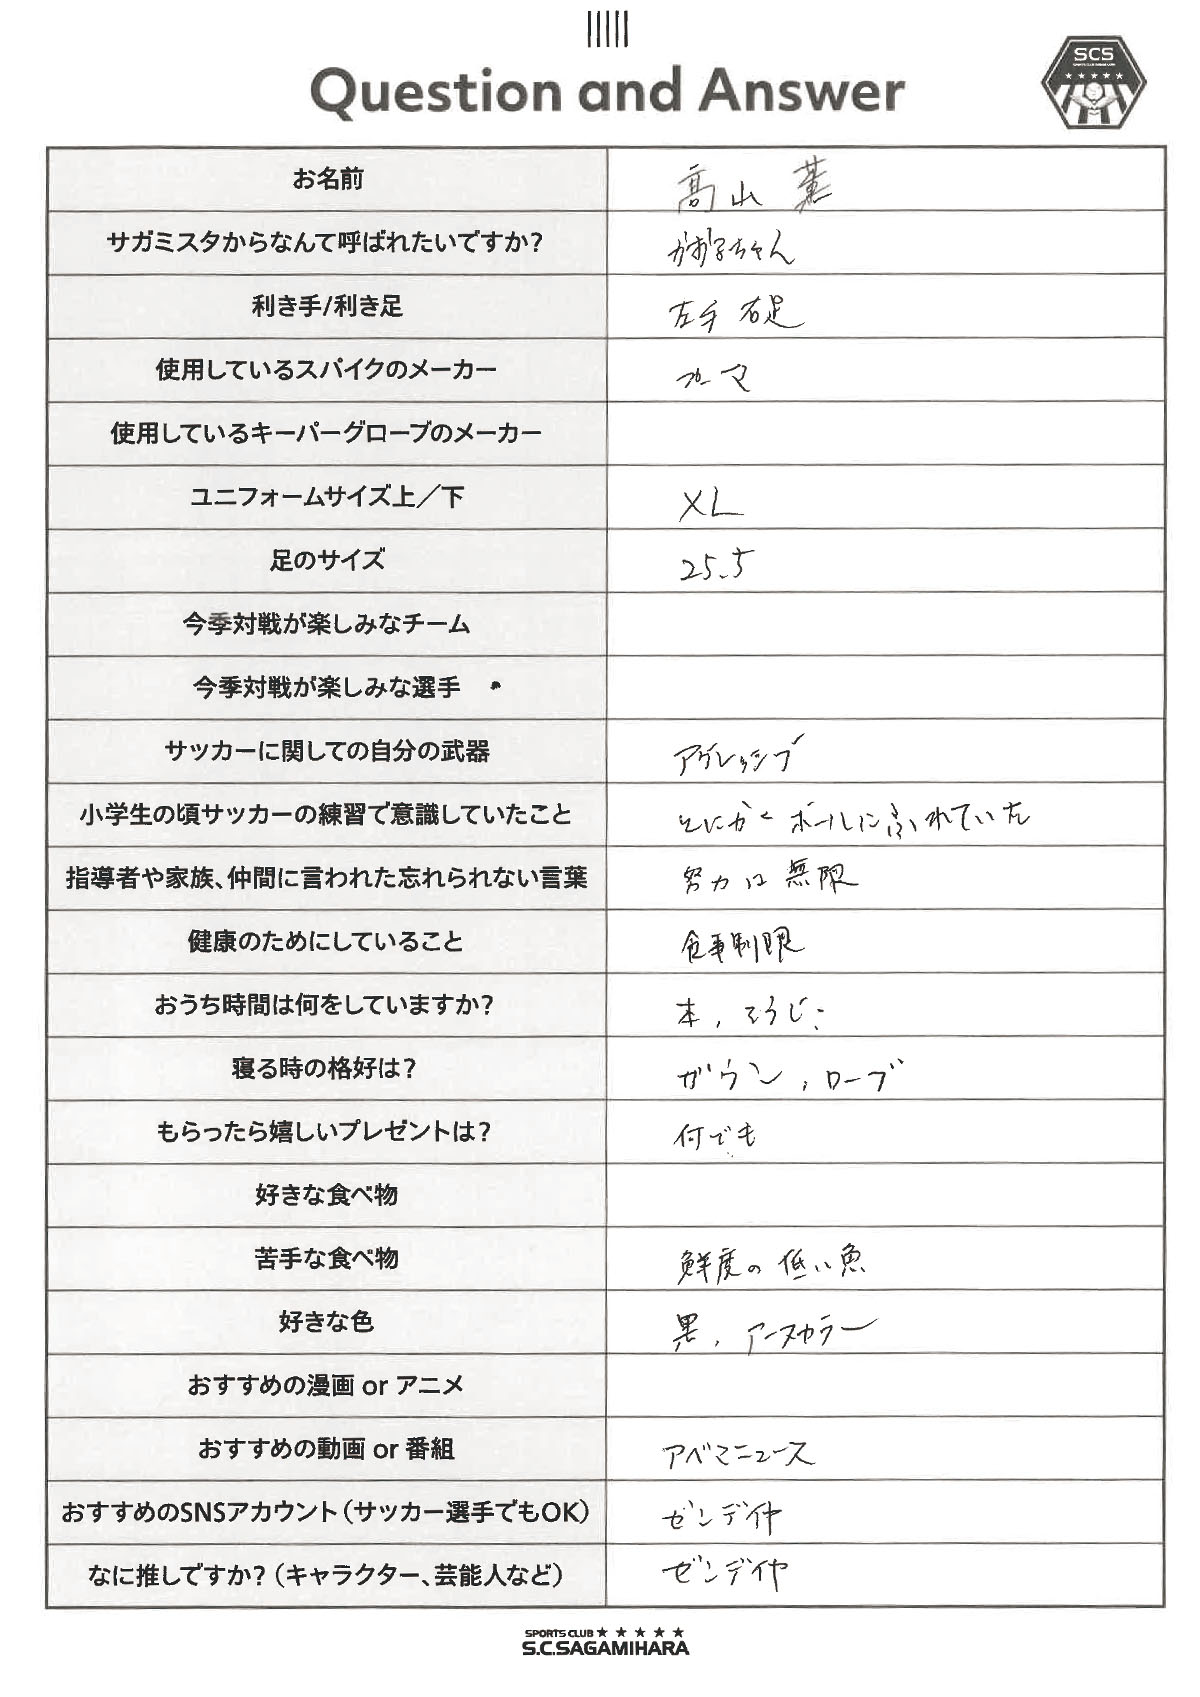 Question and Answer
SCS
お名前 髙山 薫
サガミスタからなんて呼ばれたいですか? かおるちゃん
利き手/利き足 左手 右足
使用しているスパイクのメーカー プーマ
使用しているキーパーグローブのメーカー
ユニフォームサイズ上／下 XL
足のサイズ 25.5
今季対戦が楽しみなチーム
今季対戦が楽しみな選手
サッカーに関しての自分の武器 アグレッシブ
小学生の頃サッカーの練習で意識していたこと とにかく ボールにふれていた
指導者や家族、仲間に言われた忘れられない言葉 努力は無限
健康のためにしていること 食事制限
おうち時間は何をしていますか? 本, そうじ
寝る時の格好は? ガウン, ローブ
もらったら嬉しいプレゼントは? 何でも
好きな食べ物
苦手な食べ物 鮮度の低い魚
好きな色 黒, アースカラー
おすすめの漫画 or アニメ
おすすめの動画 or 番組 アベマニュース
おすすめのSNSアカウント（サッカー選手でもOK） ゼンデイヤ
なに推しですか?（キャラクター、芸能人など） ゼンデイヤ
SPORTS CLUB ★ ★ ★ ★ ★
S.C.SAGAMIHARA